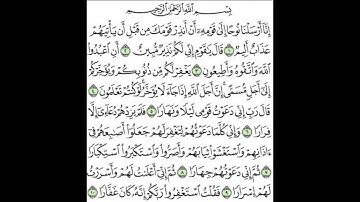 بِسْمِ اللَّهِ الرَّحْمَٰنِ الرَّحِيمِ
إِنَّا أَرْسَلْنَا نُوحًا إِلَىٰ قَوْمِهِ أَنْ أَنذِرْ قَوْمَكَ مِن قَبْلِ أَن يَأْتِيَهُمْ
عَذَابٌ أَلِيمٌ ١ قَالَ يَا قَوْمِ إِنِّي لَكُمْ نَذِيرٌ مُّبِينٌ ٢ أَنِ اعْبُدُوا
اللَّهَ وَاتَّقُوهُ وَأَطِيعُونِ ٣ يَغْفِرْ لَكُم مِّن ذُنُوبِكُمْ وَيُؤَخِّرْكُمْ
إِلَىٰ أَجَلٍ مُّسَمًّى إِنَّ أَجَلَ اللَّهِ إِذَا جَاءَ لَا يُؤَخَّرُ لَوْ كُنتُمْ تَعْلَمُونَ ٤
قَالَ رَبِّ إِنِّي دَعَوْتُ قَوْمِي لَيْلًا وَنَهَارًا ٥ فَلَمْ يَزِدْهُمْ دُعَائِي إِلَّا
فِرَارًا ٦ وَإِنِّي كُلَّمَا دَعَوْتُهُمْ لِتَغْفِرَ لَهُمْ جَعَلُوا أَصَابِعَهُمْ فِي
آذَانِهِمْ وَاسْتَغْشَوْا ثِيَابَهُمْ وَأَصَرُّوا وَاسْتَكْبَرُوا اسْتِكْبَارًا
٧ ثُمَّ إِنِّي دَعَوْتُهُمْ جِهَارًا ٨ ثُمَّ إِنِّي أَعْلَنتُ لَهُمْ وَأَسْرَرْتُ
لَهُمْ إِسْرَارًا ٩ فَقُلْتُ اسْتَغْفِرُوا رَبَّكُمْ إِنَّهُ كَانَ غَفَّارًا ١٠